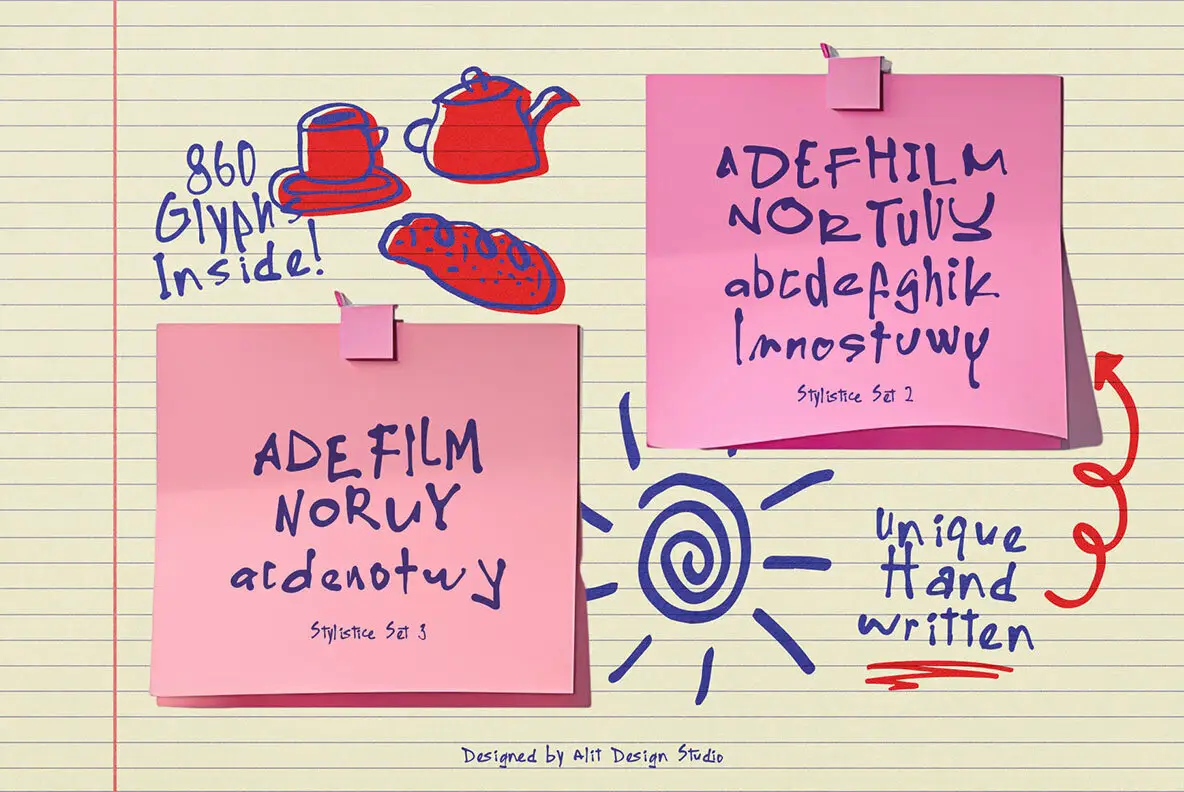 860
Glyphs
Inside!
ADEFHILM
NORTUVY
abcdefghik
lmnostuwy
Stylistice Set 2
ADEFILM
NORUY
acdenotwy
Stylistice Set 3
unique
Hand
written
Designed by Alit Design Studio